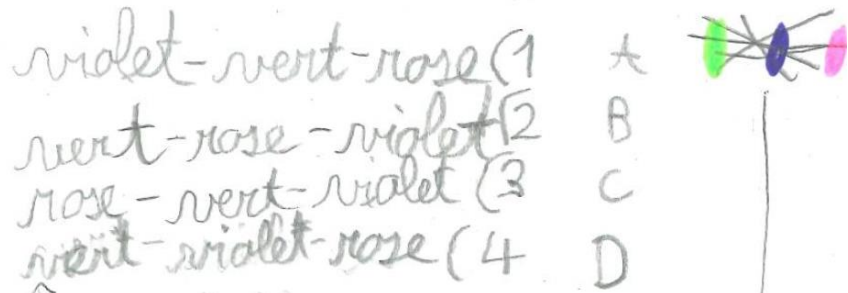 violet-vert-rose (1 A
vert-rose-violet (2 B
rose-vert-violet (3 C
vert-violet-rose (4 D